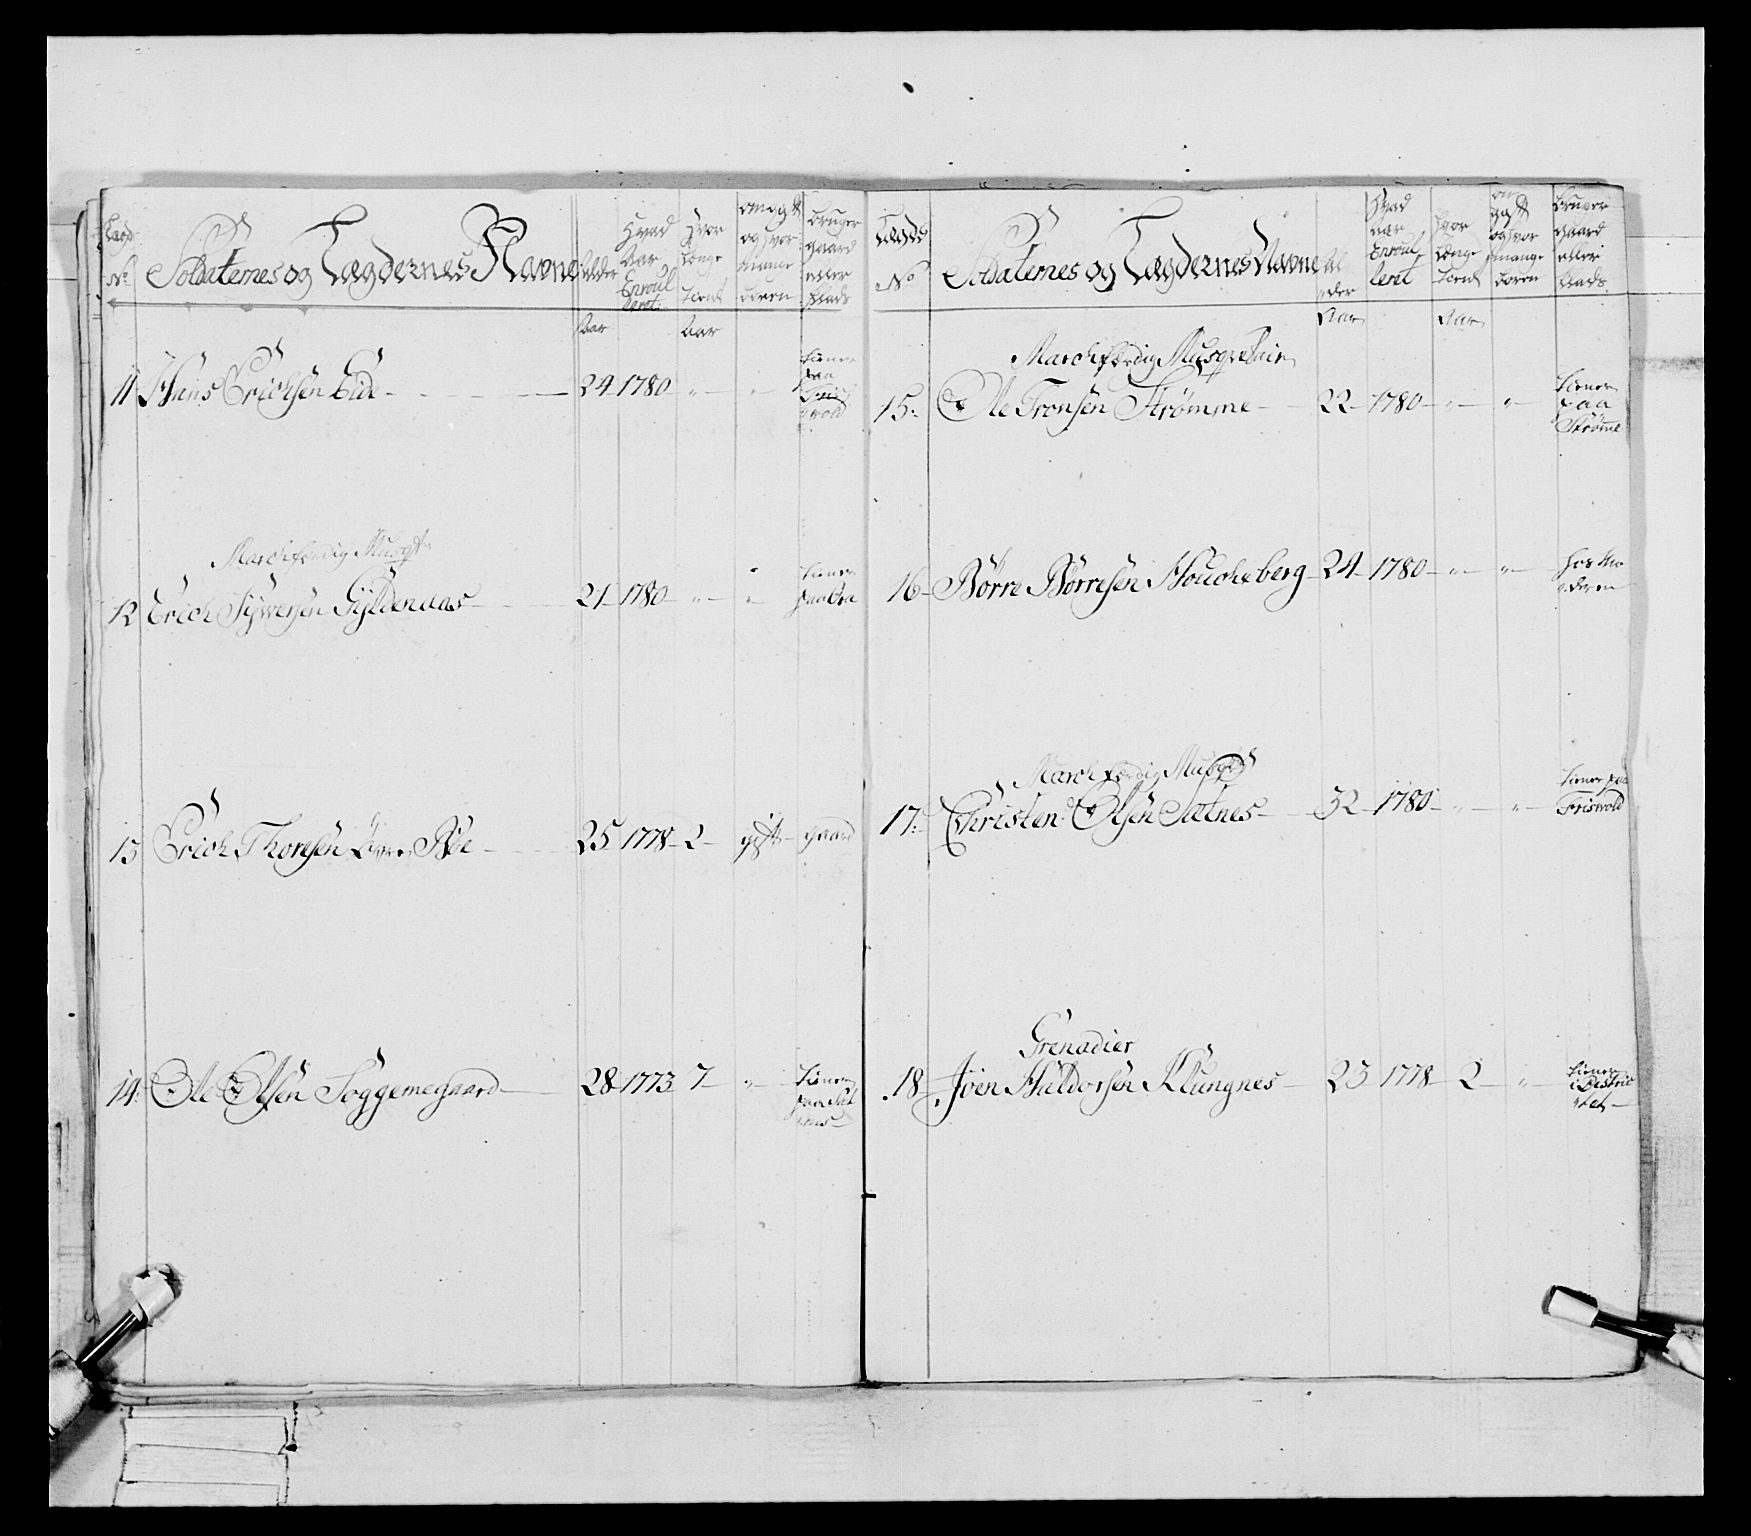 Lægd No Soldaternes og Lægdernes Navne Alder Hvad Aar Enroulleret Hvor længe tient om gift og hvor mange Børen Bruger gaard eller Plads
Aar Aar
11 Hans Erichsen Eide 24 1780 " " tiener paa Fris wold
Marchfærdig Musqt
12 Erich Syversen Gyldenaas 21 1780 " " tiener paa
13 Erich Thoresen Øvre Bøe 25 1778 2 gift gaard
14: Ole Olsen Soggemegaard 28 1773 7 " tiener paa Sæt nes
Lægds No Soldaternes og Lægdernes Navne Al der Hvad aar Enroul leret hvor længe tient om gift og hvor mange Børen Bruger gaard eller Plads
Aar Aar
Marchfærdig Musqvetair
15: Ole Tronsen Strømme 22 1780 " " tiener paa Strømme
16 Børre Børresen Houcheberg 24 1780 " " hos Mo deren
Marchfærdig Musqt
17: Christen Olsen Sætnes 32 1780 " " tiener paa Friswold
Grenadier
18 Joen Haldorsen Klungnes 23 1778 2 " tiener i Destric tet